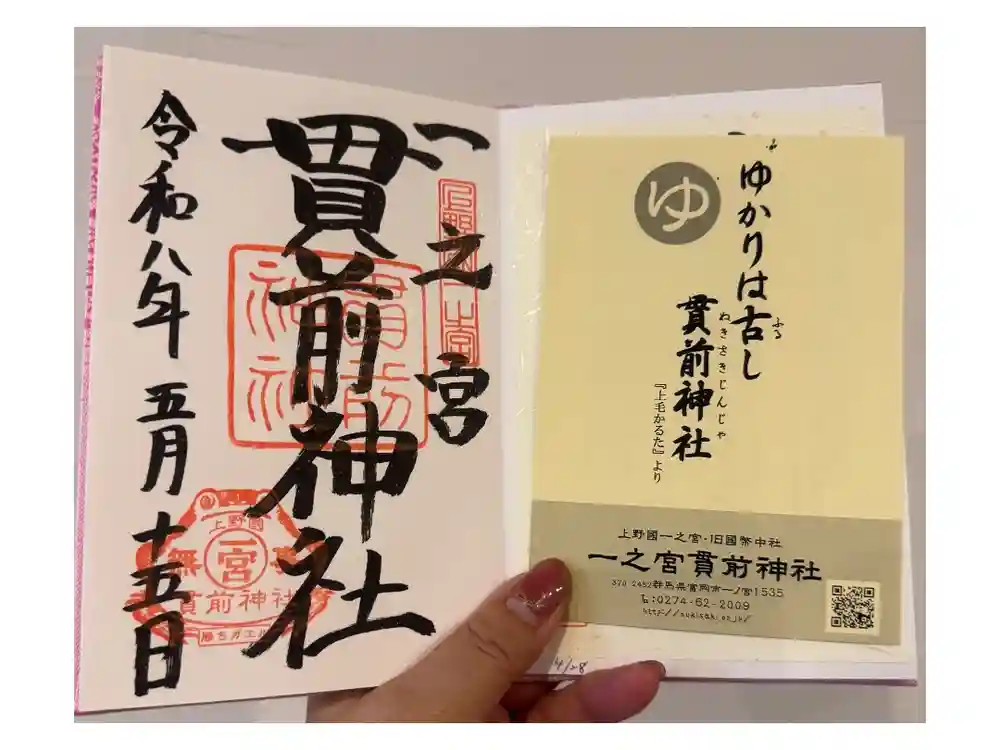 一之宮
貫前神社
令和八年 五月 十五日
貫前
神社
上野國
一宮
無事
貫前神社
勝ちガエル
ゆ
ゆかりは古し
ふる
貫前神社
ぬきさきじんじゃ
『上毛かるた』より
上野國一之宮・旧國幣中社
一之宮貫前神社
370-2452群馬県富岡市一ノ宮1535
℡:0274-62-2009
4/28